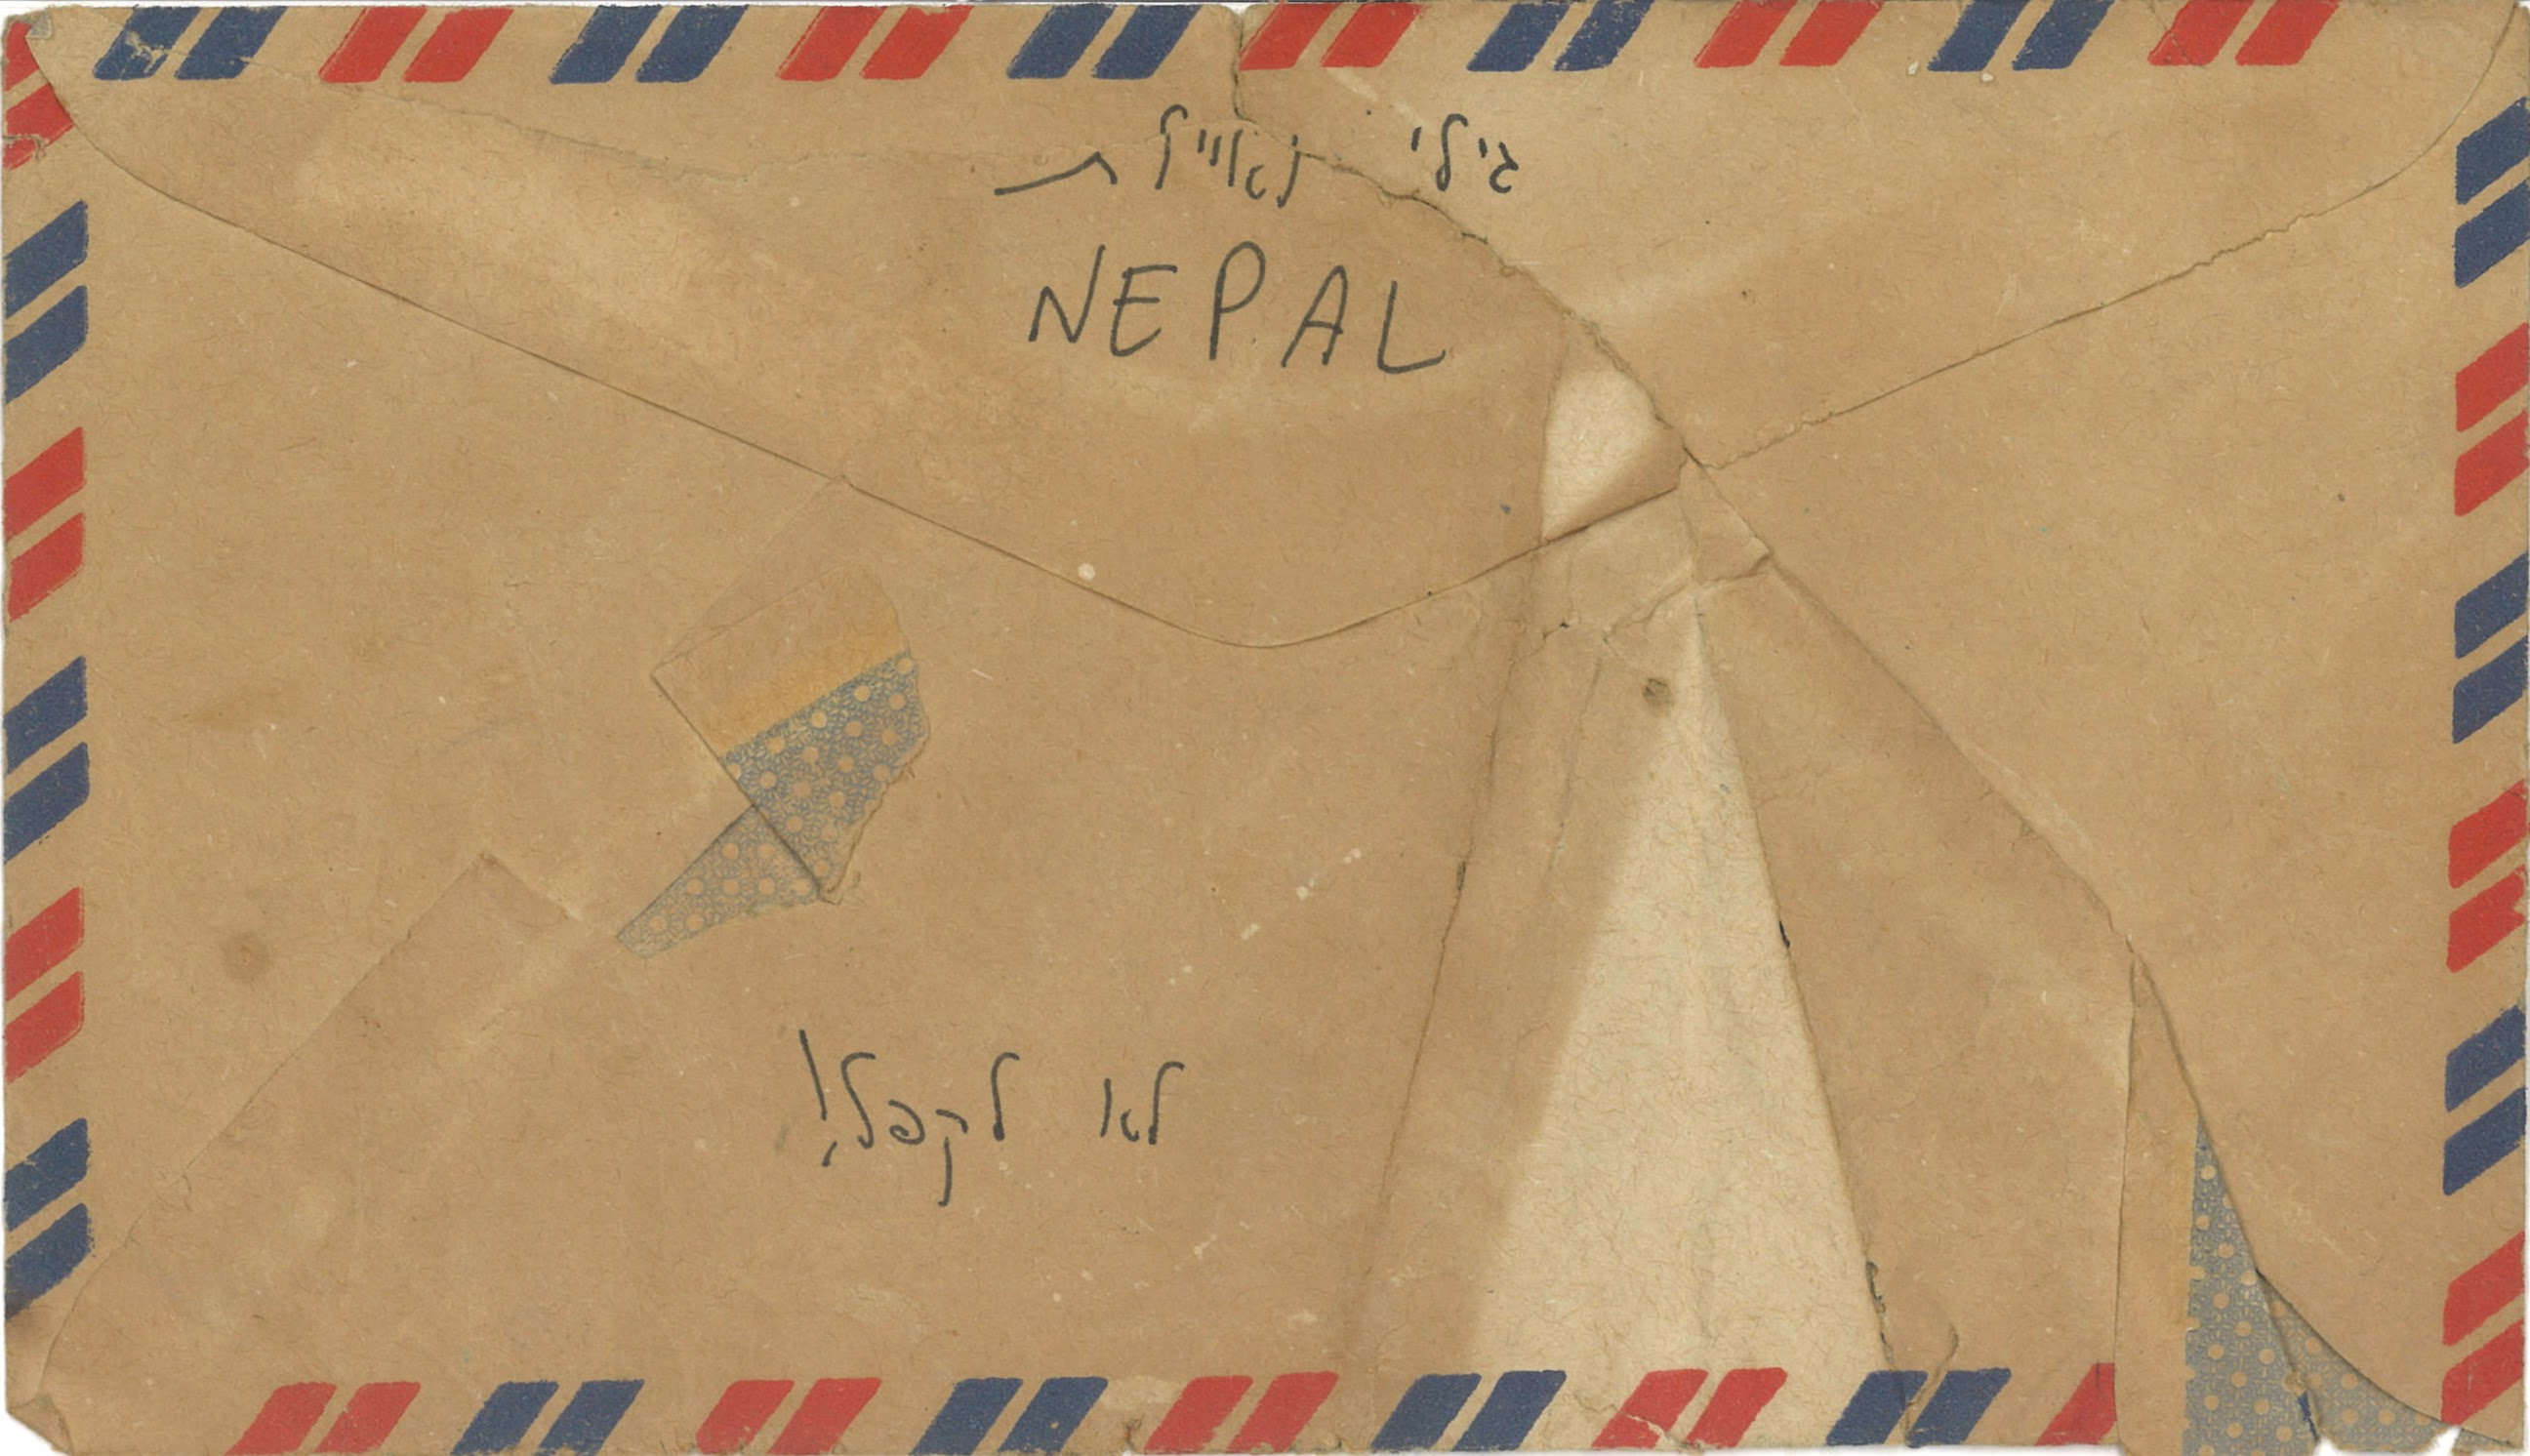 גילי ואיילת
NEPAL
לא לקפל!